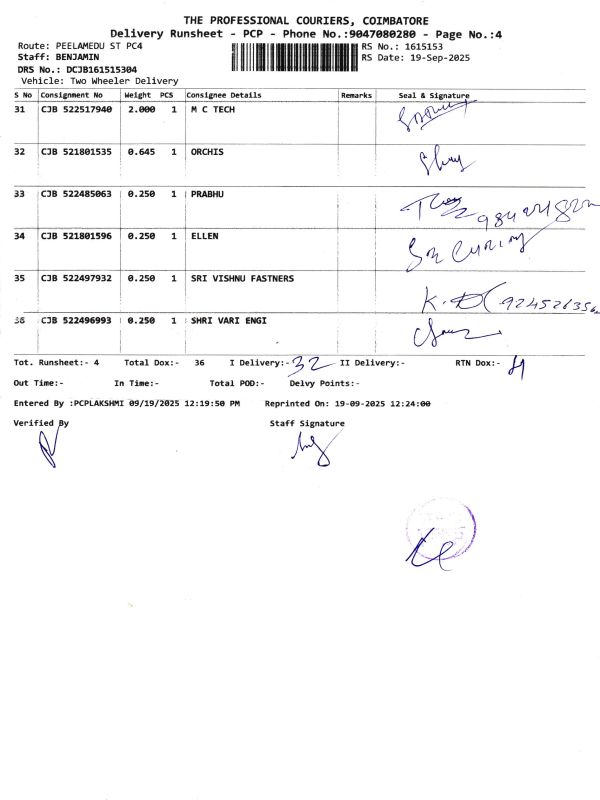 THE PROFESSIONAL COURIERS, COIMBATORE
Delivery Runsheet - PCP - Phone No.:9047080280 - Page No.:4
Route: PEELAMEDU ST PC4 RS No.: 1615153
Staff: BENJAMIN RS Date: 19-Sep-2025
DRS No.: DCJB161515304
Vehicle: Two Wheeler Delivery
S No Consignment No Weight PCS Consignee Details Remarks Seal & Signature
31 CJB 522517940 2.000 1 M C TECH
32 CJB 521801535 0.645 1 ORCHIS
33 CJB 522485063 0.250 1 PRABHU
34 CJB 521801596 0.250 1 ELLEN
35 CJB 522497932 0.250 1 SRI VISHNU FASTNERS
36 CJB 522496993 0.250 1 SHRI VARI ENGI
Tot. Runsheet:- 4 Total Dox:- 36 I Delivery:- 32 II Delivery:- RTN Dox:- 4
Out Time:- In Time:- Total POD:- Delvy Points:-
Entered By :PCPLAKSHMI 09/19/2025 12:19:50 PM Reprinted On: 19-09-2025 12:24:00
Verified By Staff Signature